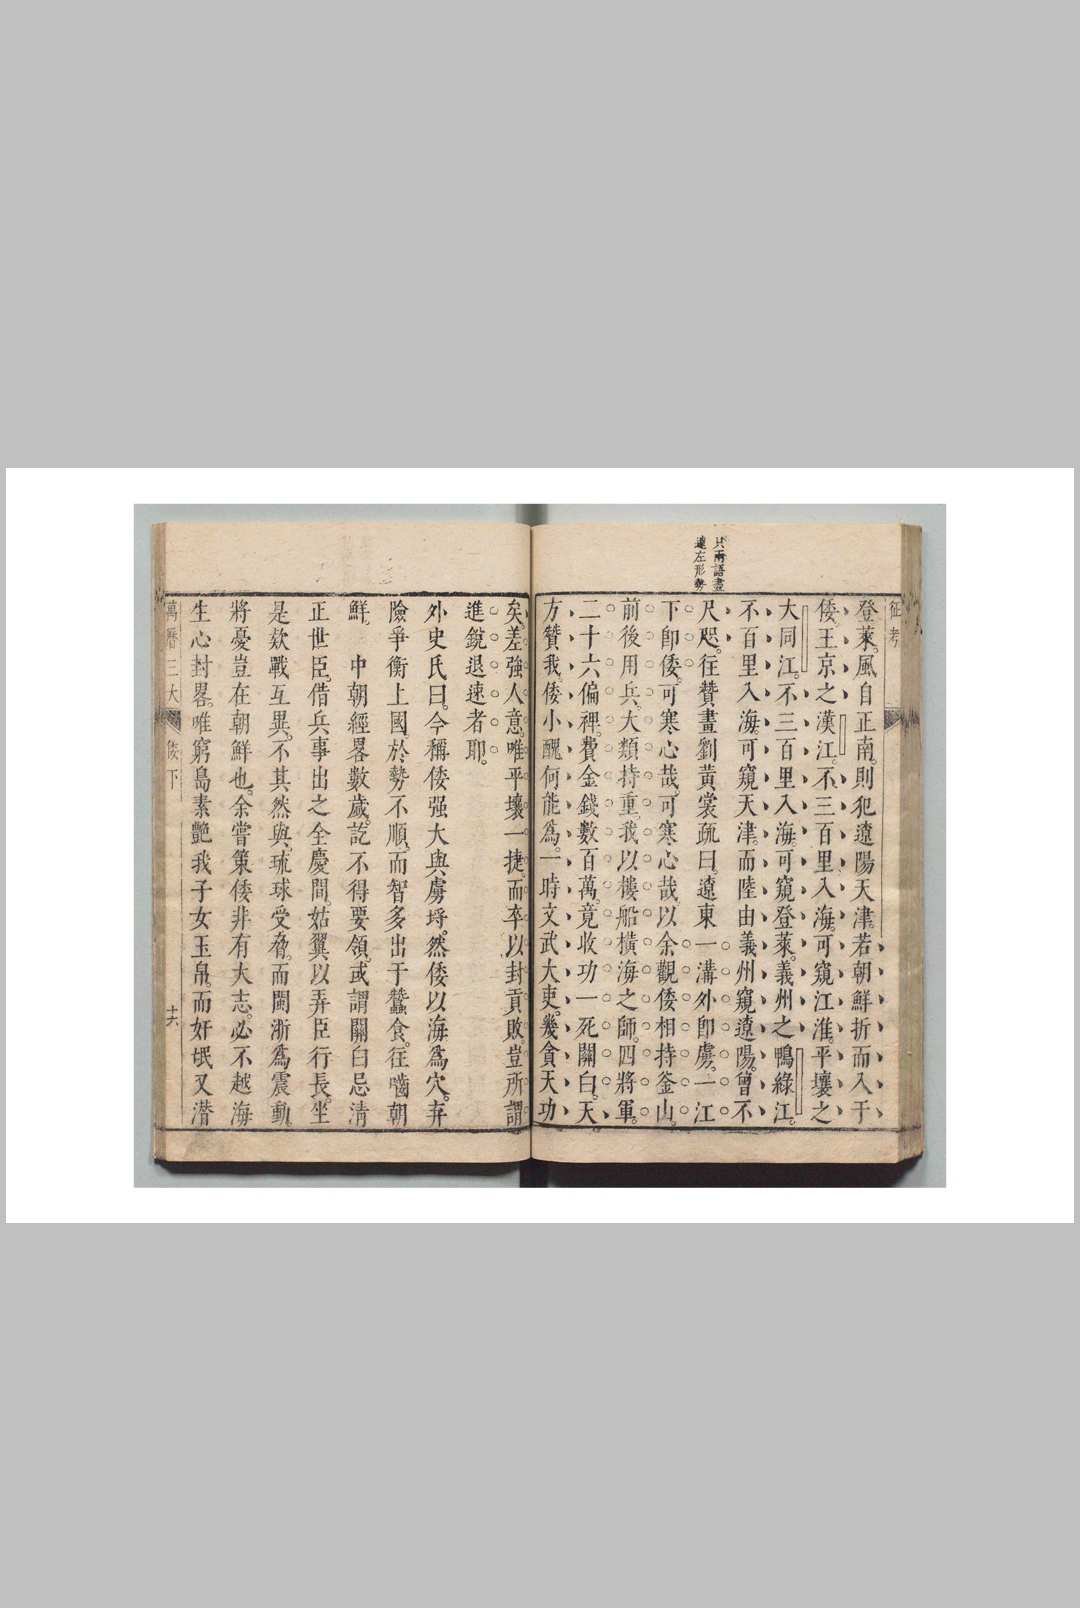 征考
登萊。風自正南。則犯遼陽天津。若朝鮮折而入于
倭。王京之漢江。不三百里入海。可窺江淮。平壤之
大同江。不三百里入海。可窺登萊。義州之鴨綠江。
不百里入海。可窺天津。而陸由義州窺遼陽。曾不
只兩語盡
遼左形勢
尺咫。往贊畫劉黃裳疏曰。遼東一溝外即虜。一江
下即倭。可寒心哉。可寒心哉。以余觀倭相持釜山。
前後用兵。大類持重。我以樓船橫海之師。四將軍。
二十六偏裨。費金錢數百萬。竟收功一死關白。天
方贊我。倭小醜何能爲。一時文武大吏。幾貪天功
矣。差強人意。唯平壤一捷。而卒以封貢敗。豈所謂
進銳退速者耶。
外史氏曰。今稱倭强大與虜埒。然倭以海爲穴。弃
險爭衡上國。於勢不順。而智多出于蠶食。往嚙朝
鮮。 中朝經畧數歲。訖不得要領。或謂關白忌清
正世臣。借兵事出之全慶間。姑翼以弄臣行長。坐
是欵戰互異。不其然與。琉球受脅。而閩浙爲震動。
將憂豈在朝鮮也。余嘗策倭非有大志。必不越海
生心封畧。唯窮島素艷我子女玉帛。而奸氓又潛
萬曆三大
倭下
十六